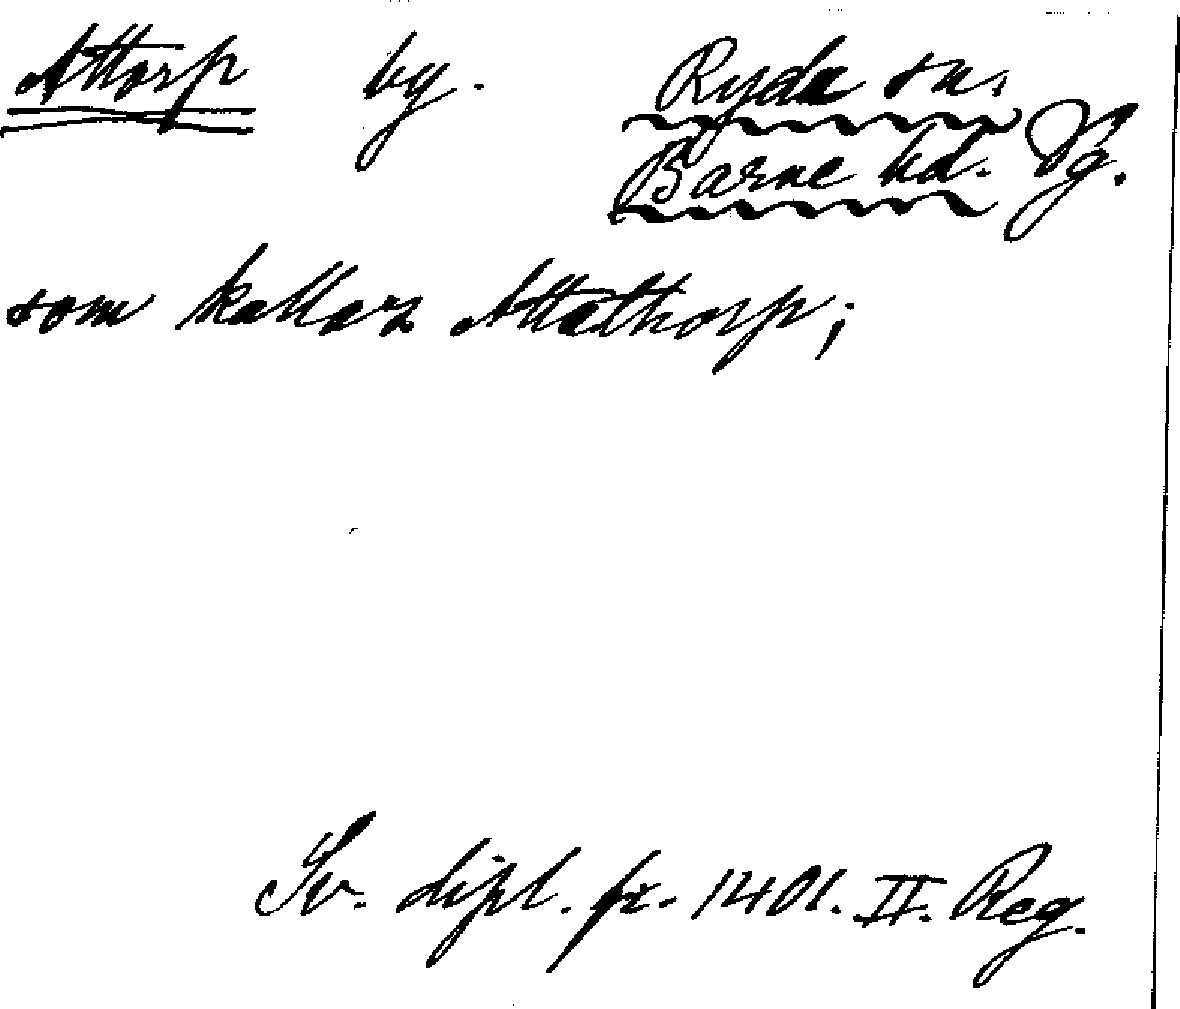 Attorp by. Ryda sn.
Barne hd. Vg.
som kallaz Attathorp;
Sv. dipl. fr. 1401. II. Reg.